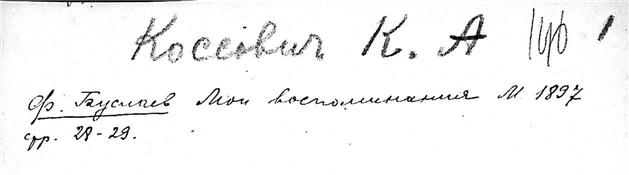 Коссович К. А 140 1
Ф. Буслаев Мои воспоминания М 1897
стр. 28-29.